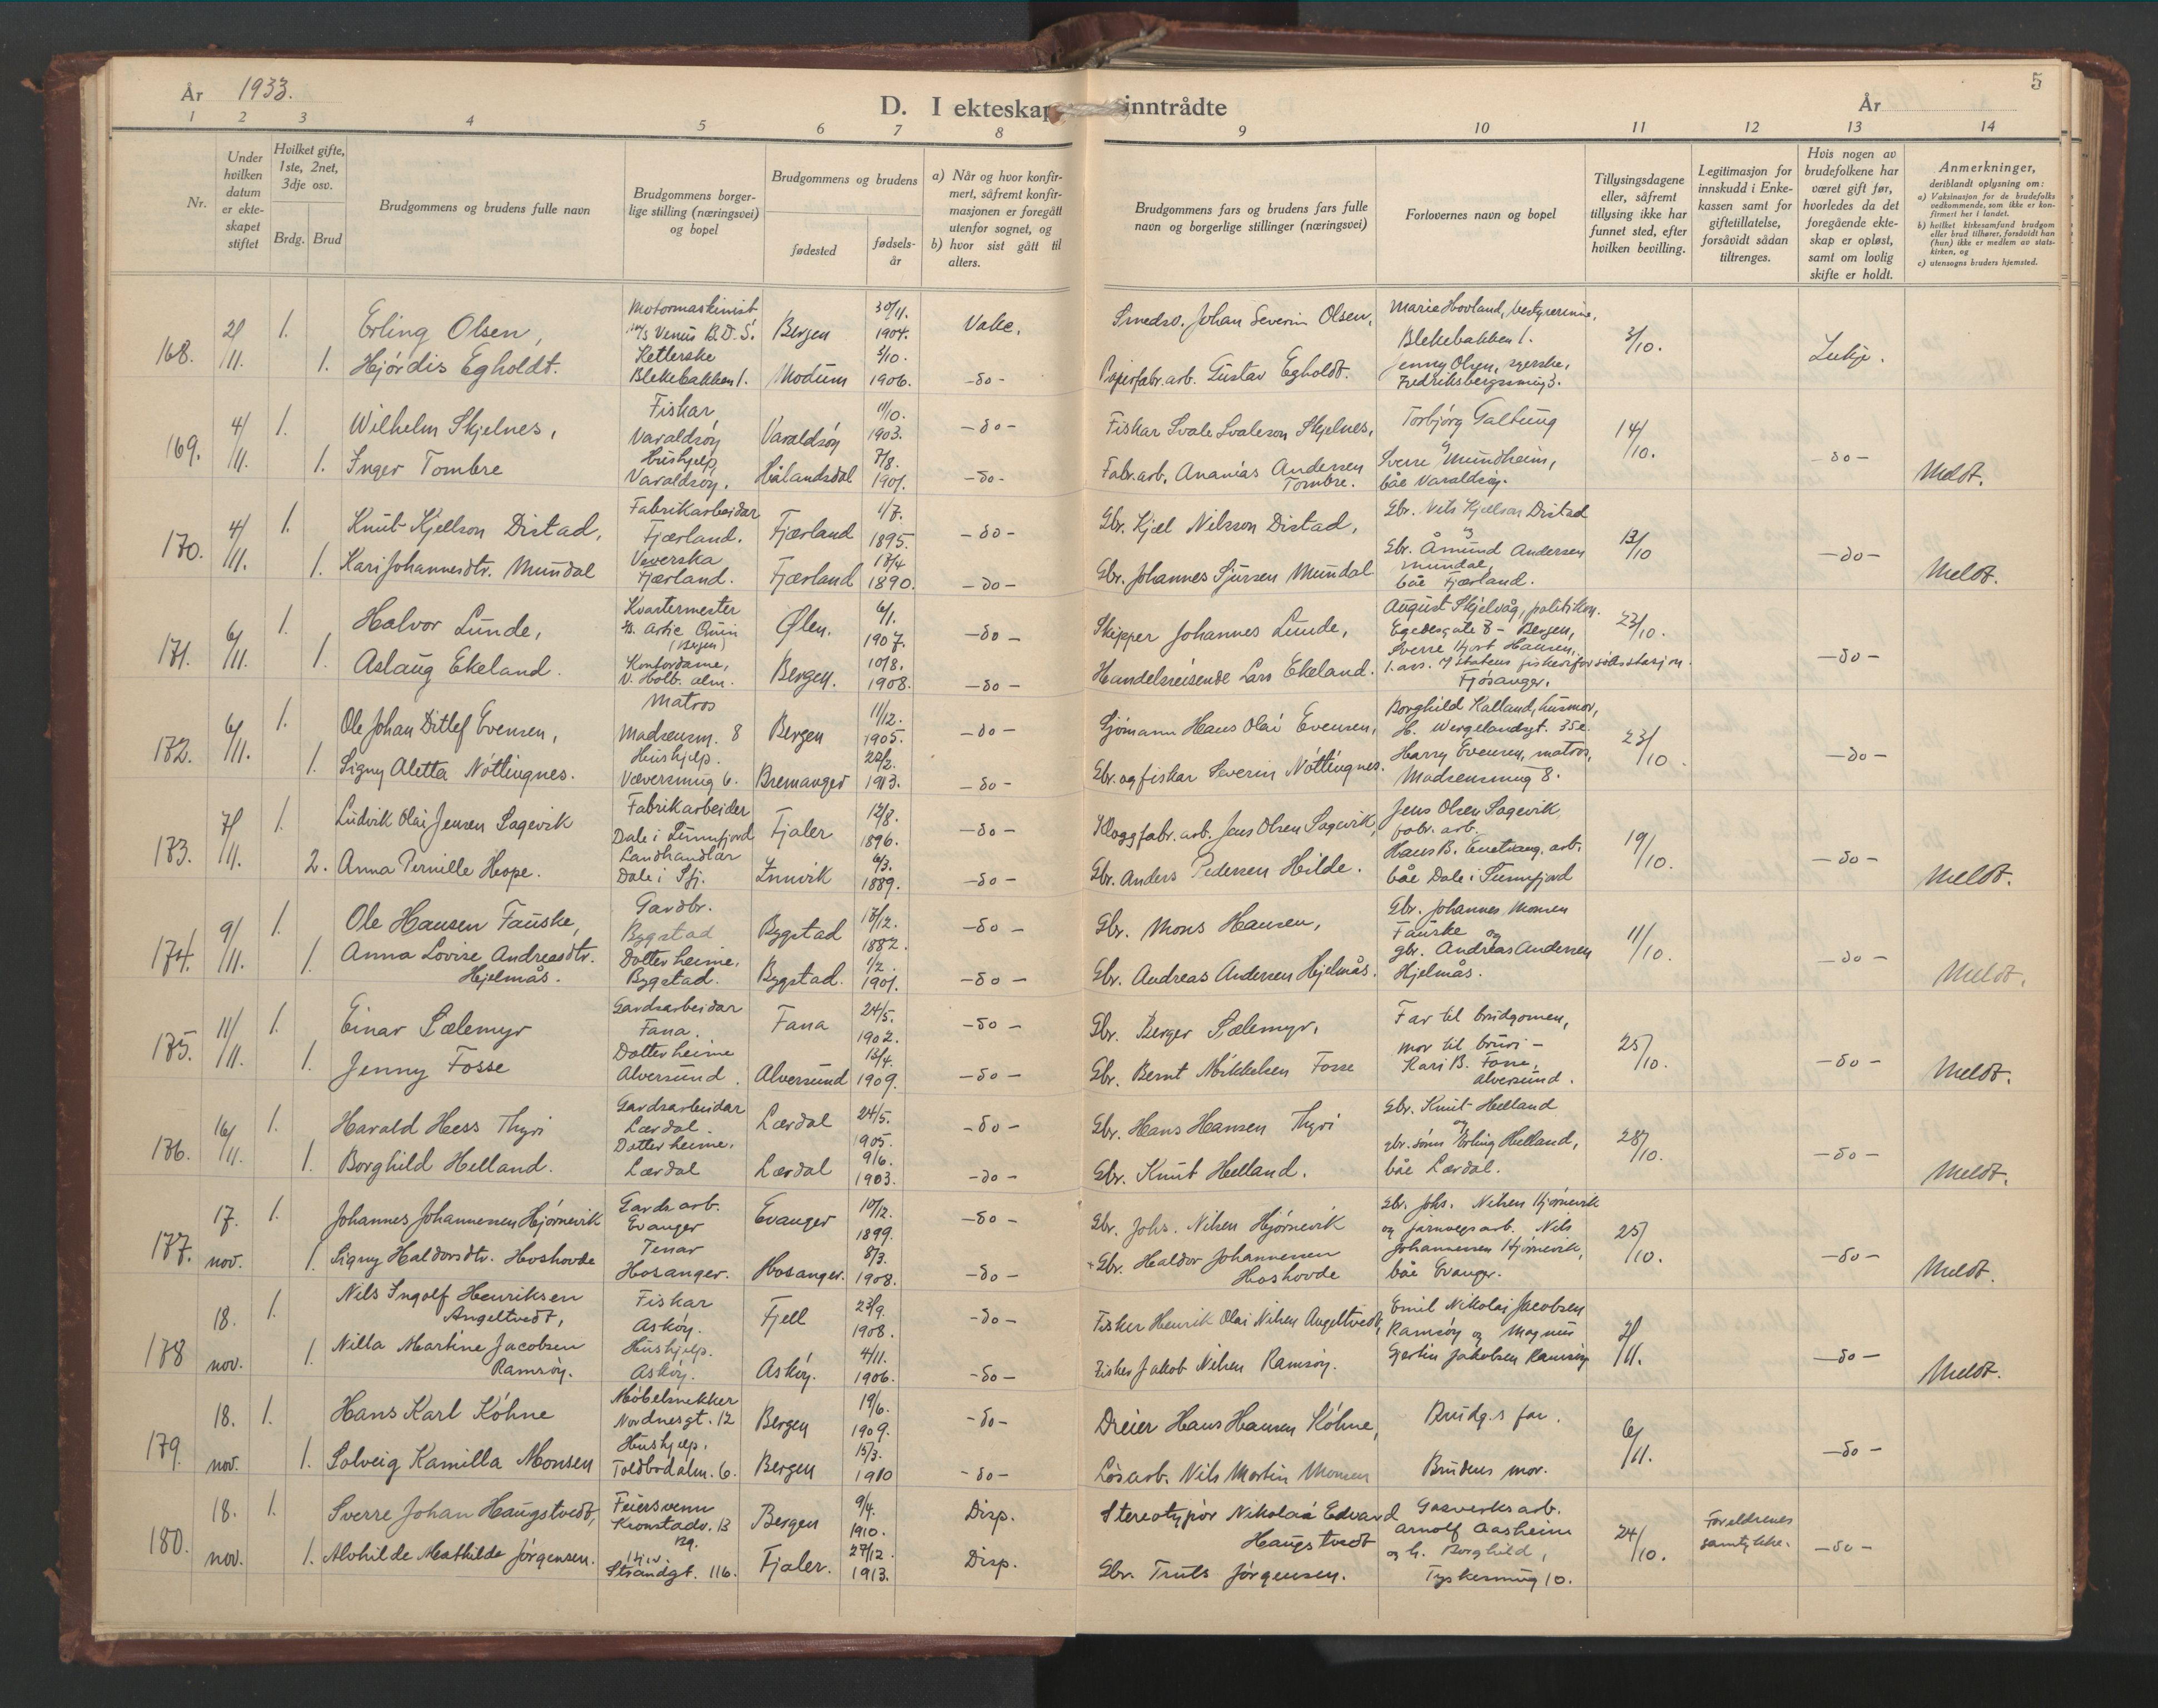 År 1933.
D. I ekteskap inntrådte
År
5
1 2 3 4 5 6 7 8 9 10 11 12 13 14
Nr.
Under hvilken datum er ekteskapet stiftet
Hvilket gifte, 1ste, 2net, 3dje osv.
Brdg. Brud
Brudgommens og brudens fulle navn
Brudgommens borgerlige stilling (næringsvei) og bopel
Brudgommens og brudens
fødested
fødselsår
a) Når og hvor konfirmert, såfremt konfirmasjonen er foregått utenfor sognet, og
b) hvor sist gått til alters.
Brudgommens fars og brudens fars fulle navn og borgerlige stillinger (næringsvei)
Forlovernes navn og bopel
Tillysingsdagene eller, såfremt tillysing ikke har funnet sted, efter hvilken bevilling.
Legitimasjon for innskudd i Enkekassen samt for giftetillatelse, forsåvidt sådan tiltrenges.
Hvis nogen av brudefolkene har været gift før, hvorledes da det foregående ekteskap er opløst, samt om lovlig skifte er holdt.
Anmerkninger,
deriblandt oplysning om:
a) Vaksinasjon for de brudefolks vedkommende, som ikke er konfirmert her i landet.
b) hvilket kirkesamfund brudgom eller brud tilhører, forsåvidt han (hun) ikke er medlem av statskirken, og
c) utensogns bruders hjemsted.
168. 2/11. 1. Erling Olsen, Motormaskinist M/S Venus B.D.S. Bergen 30/11. 1904. Smedsv. Johan Severin Olsen, Marie Hovland, bestyrerinne, Blekebakken 1. 3/10.
1. Hjördis Egholdt. Blekebakken 1. Modum 3/10. 1906. -do- Papirfabr.arb. Gustav Egholdt. Jenny Olsen, syerske, Fredriksbergsmug 3.
169. 4/11. 1. Wilhelm Skjelnes, Fiskar Varaldsöy Varaldsöy 11/10. 1903. -do- Fiskar Svale Svaleson Skjelnes, Torbjörg Galtung og 14/10. -do-
1. Inger Tombre Hushjelp, Varaldsöy. Hålandsdal 7/8. 1901. -do- Fabr.arb. Ananias Andersen Tombre. Sverre Mundheim, båe Varaldsöy. Meldt.
170. 4/11. 1. Knut Kjellson Distad, Fabrikarbeidar Fjærland. Fjærland 1/7. 1895. -do- Gbr. Kjel Nilsson Distad, Gbr. Nils Kjellson Distad og 13/10 -do-
1. Kari Johannesdtr. Mundal Veverska Fjærland. Fjærland 17/4 1890. -do- Gbr. Johannes Sjursen Mundal Gbr. Åmund Andersen Mundal, båe Fjærland. Meldt.
171. 6/11. 1. Halvor Lunde, Kvartermester (Bergen) Ølen. 6/1. 1907. -do- Skipper Johannes Lunde, August Skjelvåg, politikon. Egedesgate 8 - Bergen, 23/10.
1. Aslaug Ekeland. Kontordame, V. Holb. alm. Bergen. 10/8. 1908. -do- Handelsreisende Lars Ekeland. Sverre Hjort Hansen, 1. ass. v/ Statens fiskeriforsöksstasjon Fjösanger. -do-
172. 6/11. 1. Ole Johan Ditlef Evensen, Matros Madsensm. 8 Bergen 11/12. 1905. -do- Sjömann Hans Olai Evensen, Borghild Kalland, husmor, H. Wergelandsgt. 35e. 23/10.
1. Signy Aletta Nöttingnes. Hushjelp. Væversmug 6. Bremanger 22/2. 1913. -do- Gbr. og fiskar Severin Nöttingnes. Harry Evensen, matros, Madsensmug 8. -do-
173. 7/11. 1. Ludvik Olai Jensen Sagevik Fabrikarbeider Dale i Sunnfjord Fjaler 12/8. 1896. -do- Jens Olsen Sagevik, Jens Olsen Sagevik, fabr. arb. 19/10.
2. Anna Pernille Hope. Landhandlar Dale i Sfj. Innvik 6/3. 1889. -do- Gbr. Anders Pedersen Hilde. Hans B. arb. båe Dale i Sunnfjord -do- Meldt.
174. 9/11. 1. Ole Hansen Fauske, Gardbr. Bygstad Bygstad 17/12. 1882. -do- Gbr. Mons Hansen, Gbr. Johannes Monsen Fauske og 11/10.
1. Anna Lovise Andreasdtr. Hjelmås. Dotter heime, Bygstad. Bygstad. 1/2. 1901. -do- Gbr. Andreas Andersen Hjelmås. gbr. Andreas Andersen Hjelmås. -do- Meldt.
175. 11/11. 1. Einar Sælemyr Gardsarbeidar Fana. Fana 24/5. 1902. -do- Gbr. Berger Sælemyr, Far til brudgomen, 25/10.
1. Jenny Fosse Dotter heime Alversund. Alversund 13/4. 1909. -do- Gbr. Bernt Mikkelsen Fosse mor til bruri - Kari B. Fosse, Alversund. -do- Meldt.
176. 16/11. 1. Harald Hess Thyri Gardsarbeidar Lærdal. Lærdal 24/5. 1905. -do- Gbr. Hans Hansen Thyri Gbr. Knut Helland og 28/10.
1. Borghild Helland. Dotter heime. Lærdal Lærdal 9/6. 1903. -do- Gbr. Knut Helland. gbr. sönn Erling Helland, båe Lærdal. -do- Meldt.
177. 17. nov. 1. Johannes Johannessen Hjörnevik Gards arb. Evanger Evanger 10/12. 1899. -do- Gbr. Johs. Nilsen Hjörnevik Gbr. Johs. Nilsen Hjörnevik og jarnvegsarb. Nils 25/10.
1. Signy Haldorsdtr. Hoshovde Tenar Hosanger. Hosanger. 8/3. 1908. -do- Gbr. Haldor Johannessen Hoshovde Johannessen Hjörnevik, båe Evanger. -do- Meldt.
178 18. nov. 1. Nils Ingolf Henriksen Angeltvedt, Fiskar Asköy. Fjell 23/9. 1908. -do- Fisker Henrik Olai Nilsen Angeltvedt, Emil Nikolai Jacobsen Ramsöy og Magnus 2/11.
1. Nilla Martine Jacobsen Ramsöy. Hushjelp. Asköy. Asköy. 4/11. 1906. -do- Fisker Jakob Nilsen Ramsöy. Gerhin Jakobsen Ramsöy -do- Meldt.
179. 18. nov. 1. Hans Karl Köhne Möbelsnekker Nordnesgt. 12 Bergen 19/6. 1909. -do- Dreier Hans Hansen Köhne, Brudg.s far. 6/11.
1. Solveig Kamilla Monsen Hushjelp. Toldbodalm. 6. Bergen 15/3. 1910 -do- Lösarb. Nils Martin Monsen Brudens mor. -do-
180. 18. nov. 1. Sverre Johan Haugstvedt, Feiersvenn Kronstadv. 13 Bg. Bergen 9/4. 1910. Disp. Stereotypör Nikolai Edvard Haugstvedt Gasverksarb. Arnolf Aasheim 24/10. Foreldrenes samtykke.
1. Alvhilde Mathilde Jörgensen. Strandgt. 116. Fjaler. 27/12 1913. Disp. Gbr. Truls Jörgensen. og h. Borghild, Tyskesmug 10. -do-